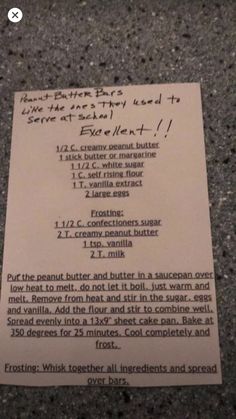 Peanut Butter Bars
Like the ones They used to
serve at school
Excellent!!
1/2 C. creamy peanut butter
1 stick butter or margarine
1 1/2 C. white sugar
1 C. self rising flour
1 T. vanilla extract
2 large eggs
Frosting:
1 1/2 C. confectioners sugar
2 T. creamy peanut butter
1 tsp. vanilla
2 T. milk
Put the peanut butter and butter in a saucepan over
low heat to melt, do not let it boil, just warm and
melt. Remove from heat and stir in the sugar, eggs
and vanilla. Add the flour and stir to combine well.
Spread evenly into a 13x9" sheet cake pan. Bake at
350 degrees for 25 minutes. Cool completely and
frost.
Frosting: Whisk together all ingredients and spread
over bars.